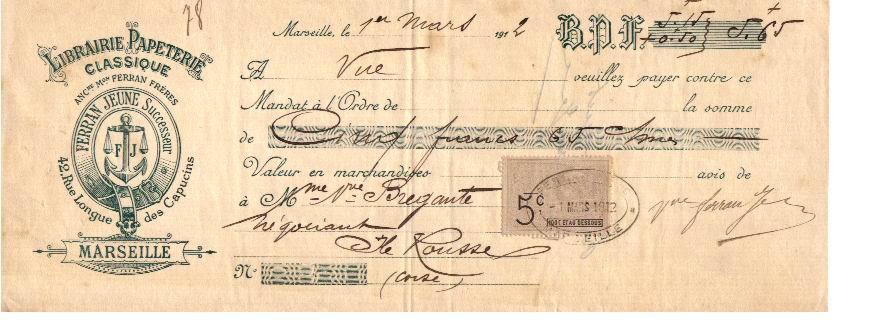 78
LIBRAIRIE PAPETERIE
CLASSIQUE
ANCNE MON FERRAN FRÈRES
FERRAN JEUNE Successeur
F J
42, Rue Longue des Capucins
MARSEILLE
Marseille, le 1er Mars 1912
B.P.F. 5.15 + 0.50 5.65
A Vue veuillez payer contre ce
Mandat à l'Ordre de la somme
de Cinq francs 65
Valeur en marchandises avis de
à Mme Vve Bregante
Négociant
Ile Rousse
(Corse)
5c
1 MARS 1912
100F ET AU DESSOUS
MARSEILLE
Vve Ferran Je
No